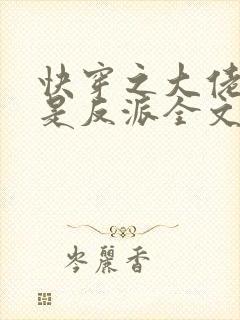 快穿之大佬
是反派全文
岑丽香